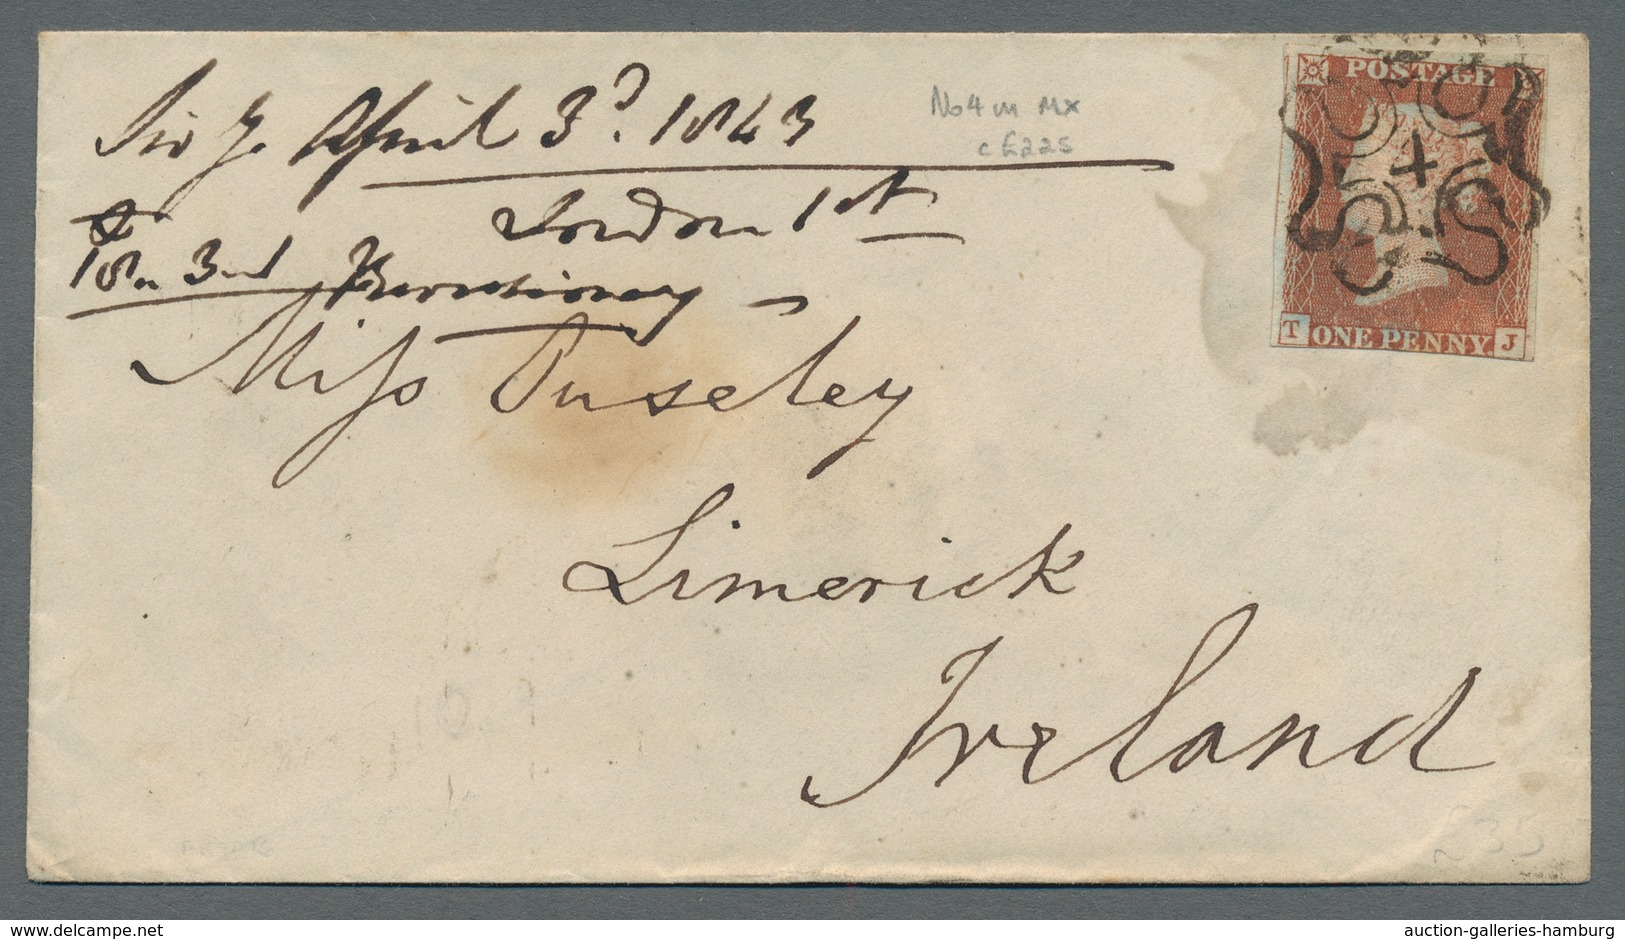 April 3d. 1843
No 4 in MX
c £225
London 1st
3rd
Miss Puseley
Limerick
Ireland
POSTAGE
T ONE PENNY J
£35
www.delcampe.net
auction-galleries-hamburg